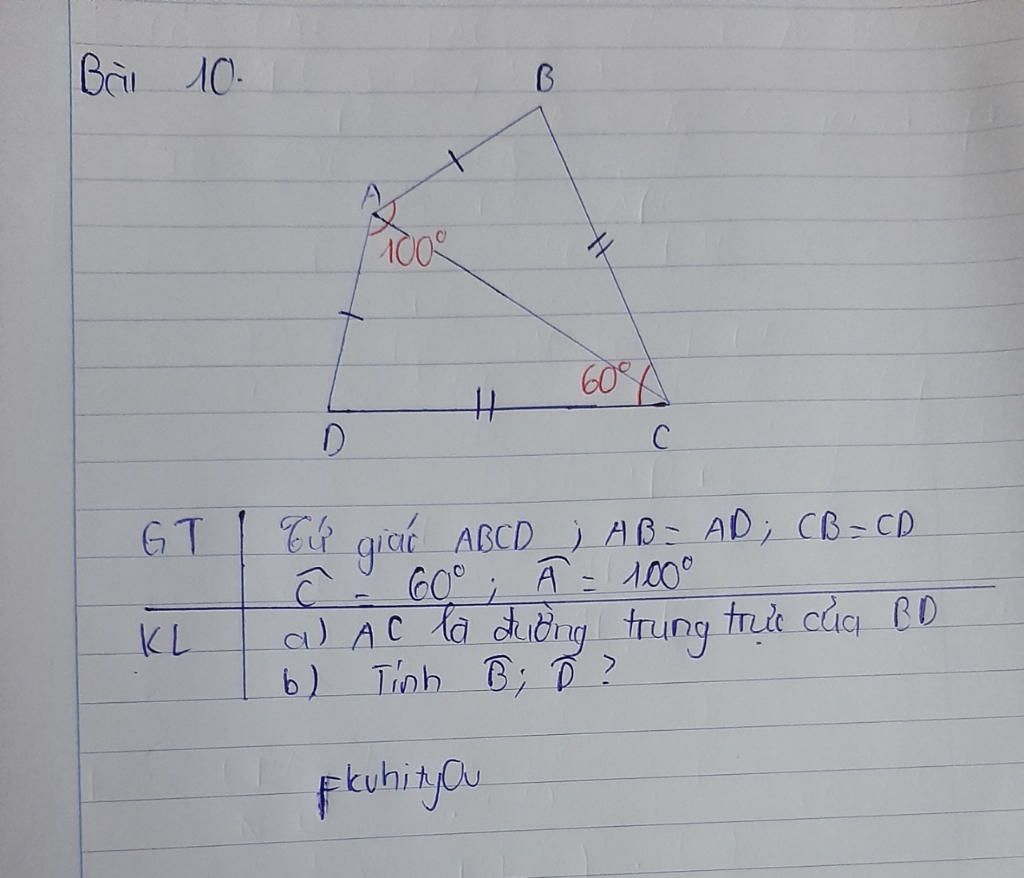 Bài 10.
B
A
100°
60°
D
C
GT Tứ giác ABCD ; AB = AD ; CB = CD
Ĉ = 60° ; Â = 100°
KL a) AC là đường trung trực của BD
b) Tính B̂ ; D̂ ?